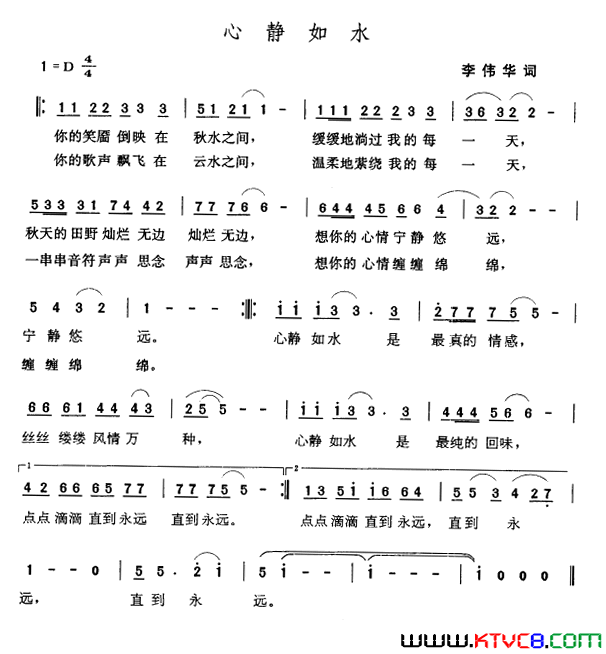 心静如水
1=D 4/4
李伟华词
11 22 3 3 3 | 51 21 1 - | 111 22 23 3 | 36 32 2 - |
你的笑靥 倒映 在 秋水之间, 缓缓地淌过 我的 每 一 天,
你的歌声 飘飞 在 云水之间, 温柔地萦绕 我的 每 一 天,
533 31 74 42 | 77 76 6 - | 644 45 66 4 | 32 2 - |
秋天的田野 灿烂 无边 灿烂 无边, 想你的 心情 宁静 悠 远,
一串串音符 声声 思念 声声 思念, 想你的 心情 缠缠 绵 绵,
5 4 3 2 | 1 - - - :||: i i i3 3 . 3 | 277 7 5 5 - |
宁 静 悠 远。 心静 如水 是 最真的 情感,
缠 缠 绵 绵。
66 61 44 43 | 25 5 - - | i i i3 3 . 3 | 444 56 6 - |
丝丝 缕缕 风情 万 种, 心静 如水 是 最纯的 回味,
1 2
42 66 65 77 | 77 75 5 - :|| 13 5i i6 64 | 55 3 4 27 |
点点 滴滴 直到 永远 直到 永远。 点点 滴滴 直到 永远, 直到 永
1 - - 0 | 55 . 2 i | 5 i - - | i - - - | i 0 0 0 ||
远, 直到 永 远。
www.KTVC8.com